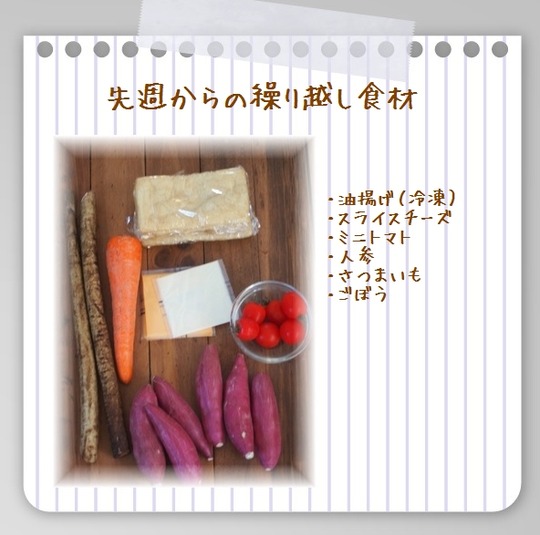 先週からの繰り越し食材
・油揚げ(冷凍)
・スライスチーズ
・ミニトマト
・人参
・さつまいも
・ごぼう